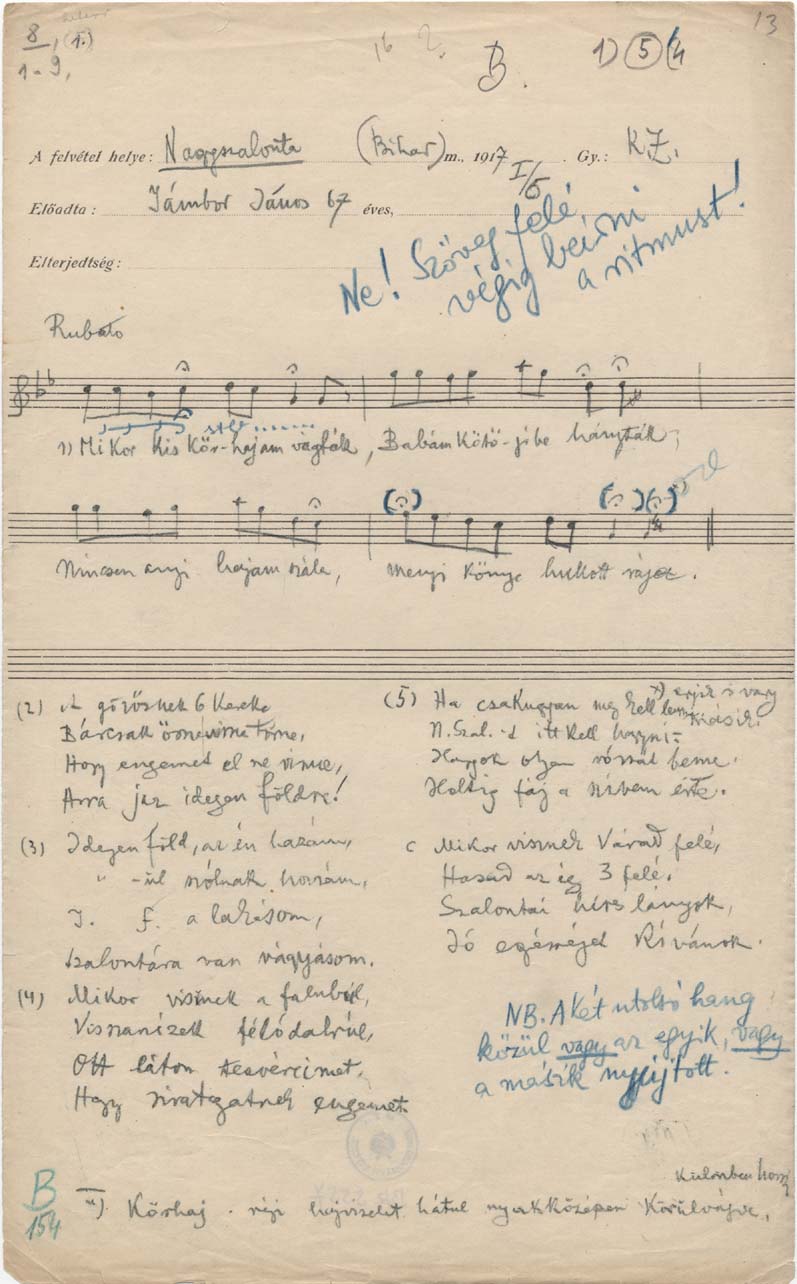 8, (1.)
1-9.
13
16 2.
B.
1) 5 (4
A felvétel helye: Nagyszalonta (Bihar) m., 1917 I/5. Gy.: K.Z.
Előadta: Jámbor János 67 éves,
Elterjedtség:
Ne! Szöveg felé,
végig beírni
a ritmust!
Rubato
1) Mikor kis Kör-hajam vágták, Babám kötő-jibe hányták;
Nincsen anyi hajam szála, menyi könye hullott rája.
(2) A gőzösnek 6 kereke
Bárcsak össze törne,
Hogy engemet el ne vinne,
Arra jaz idegen földre!
(3) Idegen föld, az én hazám,
" -ül szólnak hozzám,
I. f. a lakásom,
Szalontára van vágyásom.
(4) Mikor visznek a falubúl,
Visszanízek félódalrúl,
Ott láton tesvéreimet,
Hogy siratgatnak engemet.
(5) Ha csakugyan meg kell lenni
N. Szal.-t itt kell hagyni
Hagyok olyan rózsát benne.
Holtig fáj a szívem érte.
c Mikor visznek Várad felé,
Hasad az ég 3 felé,
Szalontai híres lányok,
Jó egésséget kívánok.
NB. A két utolsó hang
közül vagy az egyik, vagy
a másik nyújtott.
B
154
különben hosszú
x) Körhaj. régi hajviselet hátul nyakközépen körülvágva,